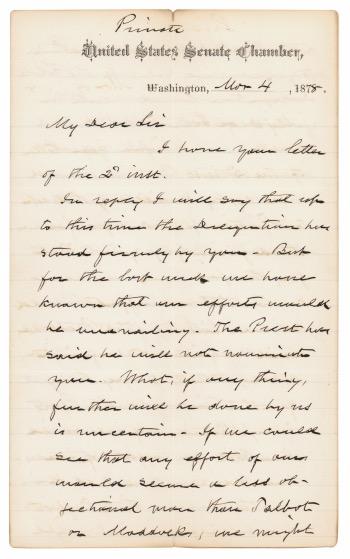 Private
United States Senate Chamber,
Washington, Mar 4, 1878.
My Dear Sir
I have your letter
of the 2d inst.
In reply I will say that up
to this time the Delegation has
stood firmly by you - But
for the last week we have
known that our efforts would
be unavailing. The Prest has
said he will not nominate
you. What, if any thing,
further will be done by us
is uncertain - If we could
see that any effort of ours
would secure a less ob-
jectional man than Talbot
or Maddocks, we might